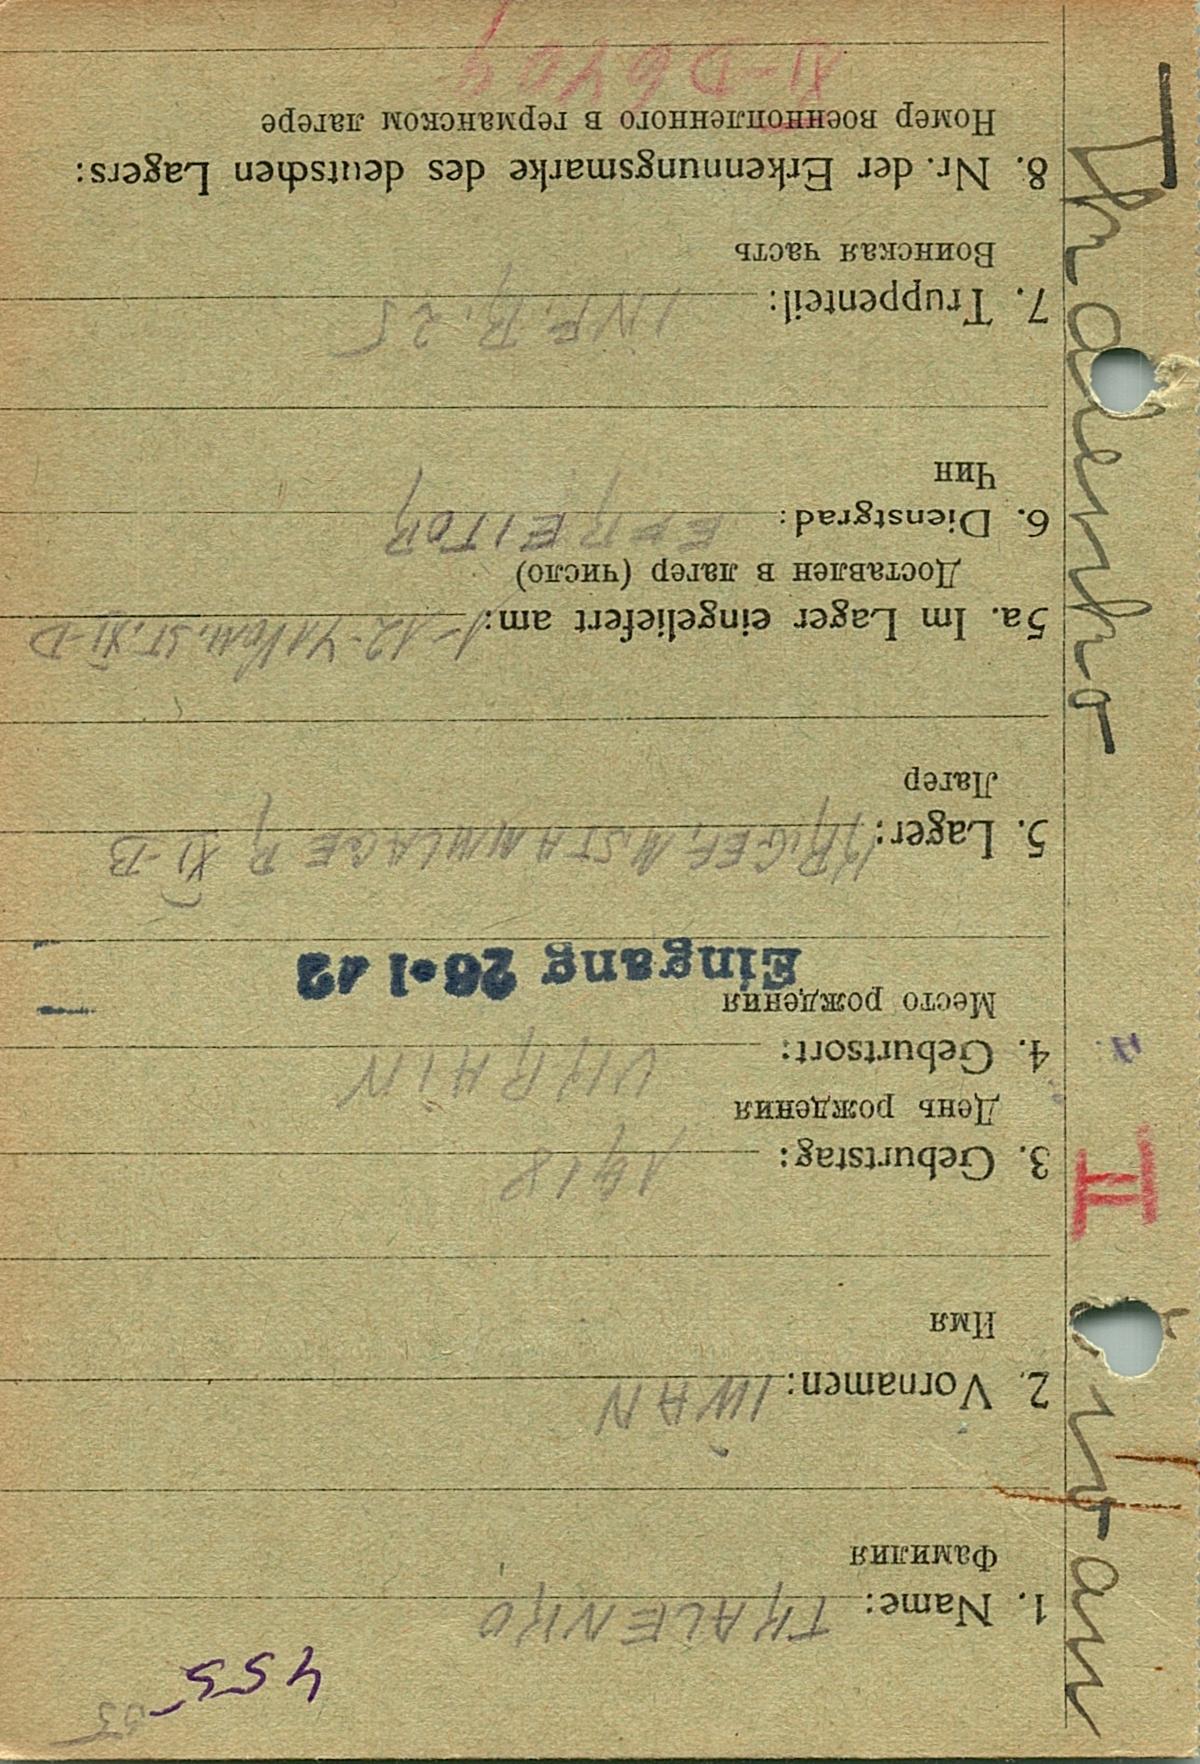 455
1. Name: TKALENKO
Фамилия
2. Vornamen: IWAN
Имя
3. Geburtstag: 1918
День рождения
4. Geburtsort: UKRAIN
Место рождения
Eingang 26.1 42
5. Lager: KR.GEF.M.STAMMLAGER XI-B
Лагер
5a. Im Lager eingeliefert am: 1-12-41 KOM.ST.XI-D
Доставлен в лагер (число)
6. Dienstgrad: EFREITOR
Чин
7. Truppenteil: INF.R.25
Воинская часть
8. Nr. der Erkennungsmarke des deutschen Lagers:
Номер военнопленного в германском лагере
XI-D 6404
II